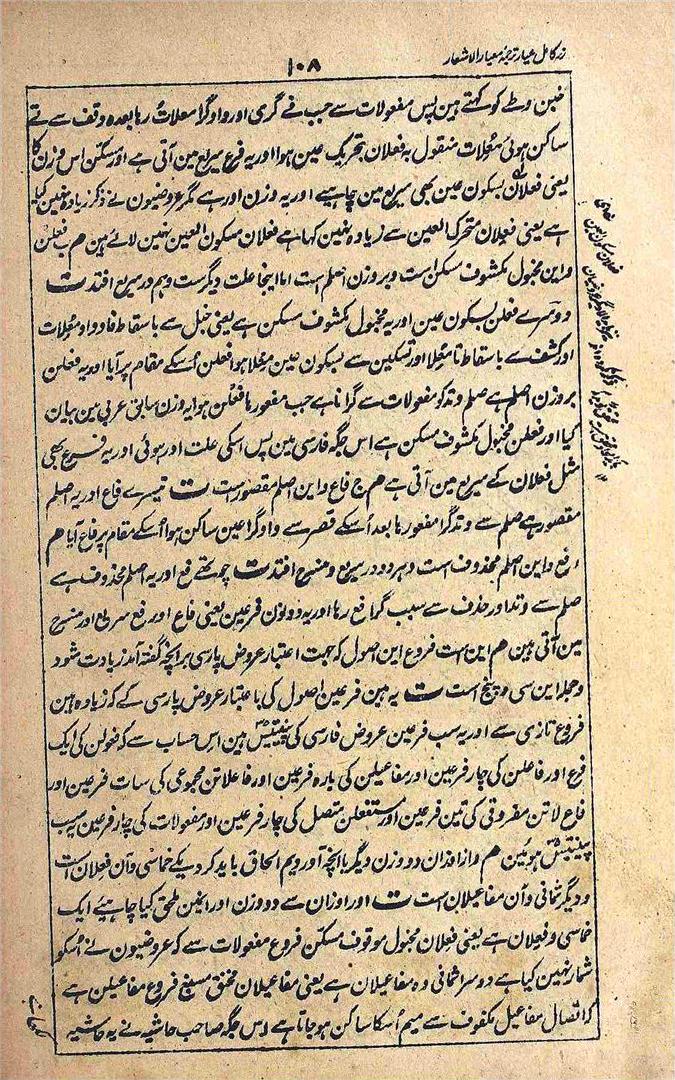 زر کامل عیار ترجمۂ معیار الاشعار
۱۰۸
خبن و طے کو کہتے ہین پس مفعولات سے جب فے گری اور واو گرا معلات رہا بعدہ وقف سے تے
ساکن ہوئی معلات منقول بہ فعلان بتحریک عین ہوا اور یہ فرع سریع مین آتی ہے اور مسکن اس وزن کا
یعنی فعلان بسکون عین بھی سریع مین چاہیے اور یہ وزن اور ہے مگر عروضیون نے ذکر زیادہ نہین کیا
ہے یعنی فعلان متحرک العین سے زیادہ نہین کہا ہے فعلان مسکون العین نہین لائے ہین هم ب فعلن
و این مخبول مکشوف مسکن است و بر وزن اصلم است اما اینجا علت دیگر ست و هم در سریع افتد ت
دوسرے فعلن بسکون عین اور یہ مخبول مکشوف مسکن ہے یعنی خبل سے باسقاط فا و واو معلات
اور کشف سے باسقاط تا معلا اور تسکین سے بسکون عین معلا ہوا فعلن اُسکے مقام پر آیا اور یہ فعلن
بر وزن اصلم ہے صلم وتد کو مفعولات سے گرانا ہے جب مفعو رہا فعلن ہوا یہ وزن سابق عربی مین بیان
کیا اور فعلن مخبول مکشوف مسکن ہے اس جگہ فارسی مین پس اسکی علت اور ہوئی اور یہ فرع بھی
مثل فعلان کے سریع مین آتی ہے هم ج فاع و این اصلم مقصور است ت تیسرے فاع اور یہ اصلم
مقصور ہے صلم سے وتد گرا مفعو رہا بعد اُسکے قصر سے واو گرا عین ساکن ہوا اُسکے مقام پر فاع آیا هم
د فع و این اصلم محذوف است و ہر دو در سریع و منسرح افتد ت چوتھے فع اور یہ اصلم محذوف ہے
صلم سے وتد اور حذف سے سبب گرا فع رہا اور یہ دونون فرعین یعنی فاع اور فع سریع اور منسرح
مین آتی ہین هم این است فروع این اصول کہ بجہت اعتبار عروض پارسی بر آنچہ گفتہ آمد زیادت شود
و جملہ این سی و پنج است ت یہ ہین فرعین اصول کی باعتبار عروض پارسی کے کہ زیادہ ہین
فروع تازی سے اور یہ سب فرعین عروض فارسی کی پینتیس ہین اس حساب سے کہ فعولن کی ایک
فرع اور فاعلن کی چار فرعین اور مفاعیلن کی بارہ فرعین اور فاعلاتن مجموعی کی سات فرعین اور
فاع لاتن مفروقی کی تین فرعین اور مستفعلن متصل کی چار فرعین اور مفعولات کی چار فرعین یہ سب
پینتیس ہوئین هم و از اوزان دو وزن دیگر با آنچہ آوردیم الحاق باید کرد یکے خماسی و آن فعلان است
و دیگر ثمانی و آن مفاعیلان است ت اور اوزان سے دو وزن اور انہین ملحق کیا چاہیے ایک
خماسی وہ فعلان ہے یعنی فعلان مخبول موقوف مسکن فروع مفعولات سے کہ عروضیون نے اُسکو
شمار نہین کیا ہے دوسرا ثمانی وہ مفاعیلان ہے یعنی مفاعیلان مخنق مسبغ فروع مفاعیلن ہے
کہ اتصال مفاعیل مکفوف سے میم اُسکا ساکن ہو جاتا ہے اس جگہ صاحب حاشیہ نے یہ حاشیہ